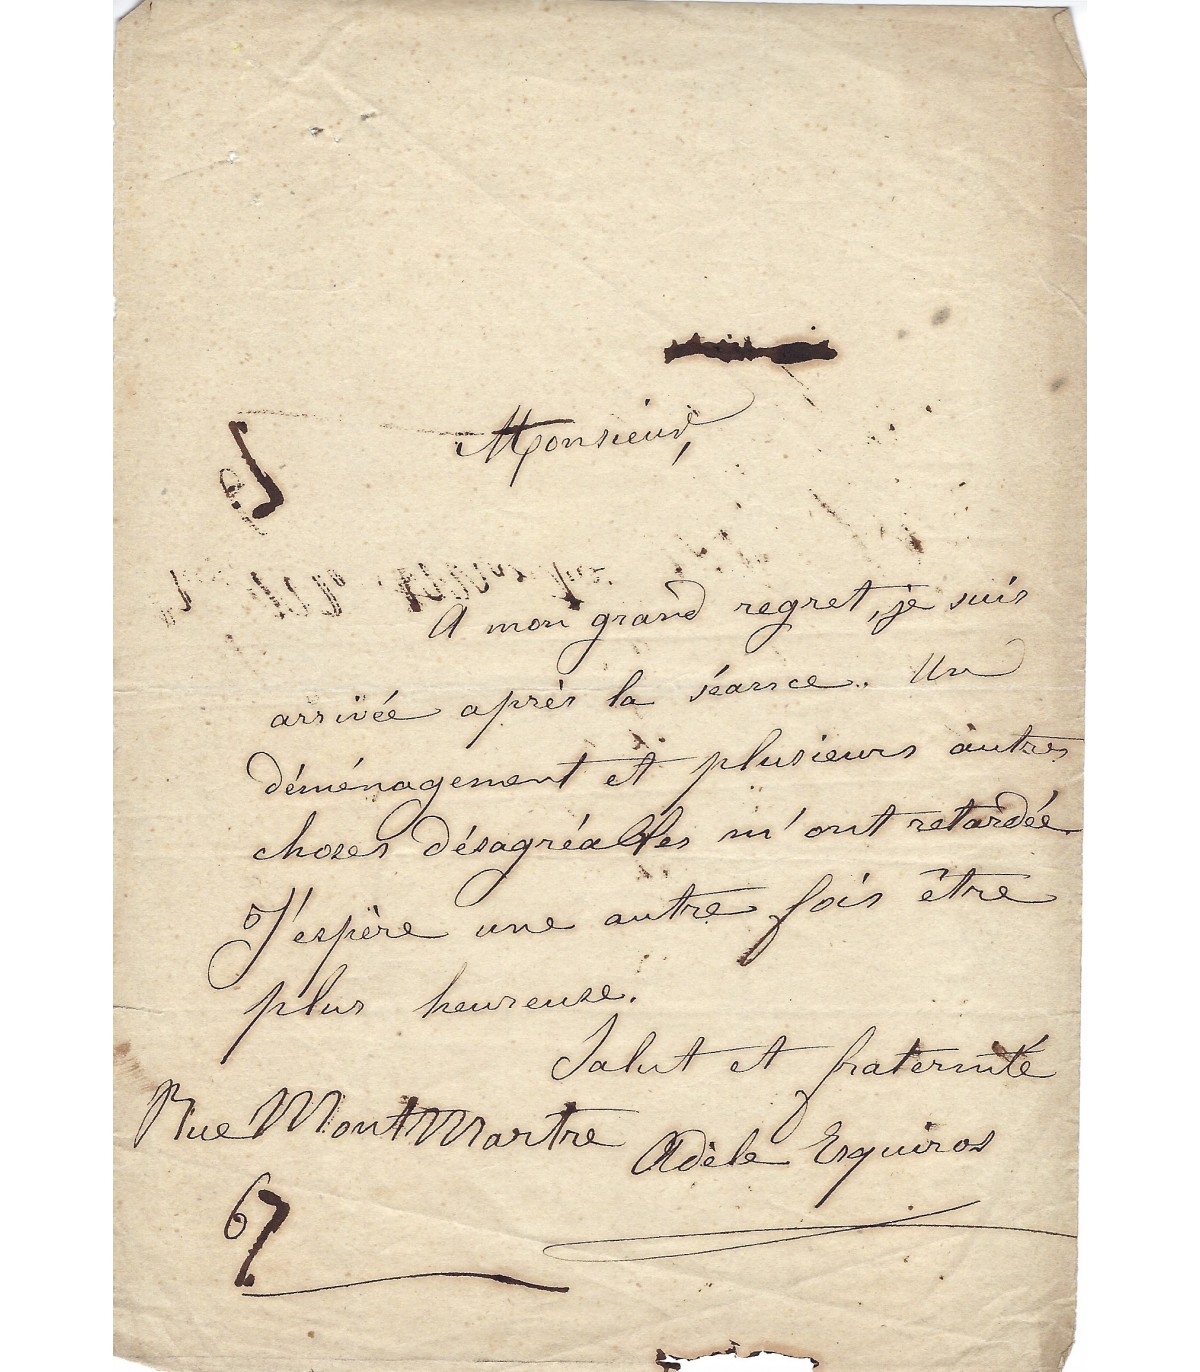 Monsieur,
A mon grand regret, je suis
arrivée après la séance. Un
déménagement et plusieurs autres
choses désagréables m'ont retardée
J'espère une autre fois être
plus heureuse.
Salut et fraternité
Rue MontMartre Adèle Esquiros
67